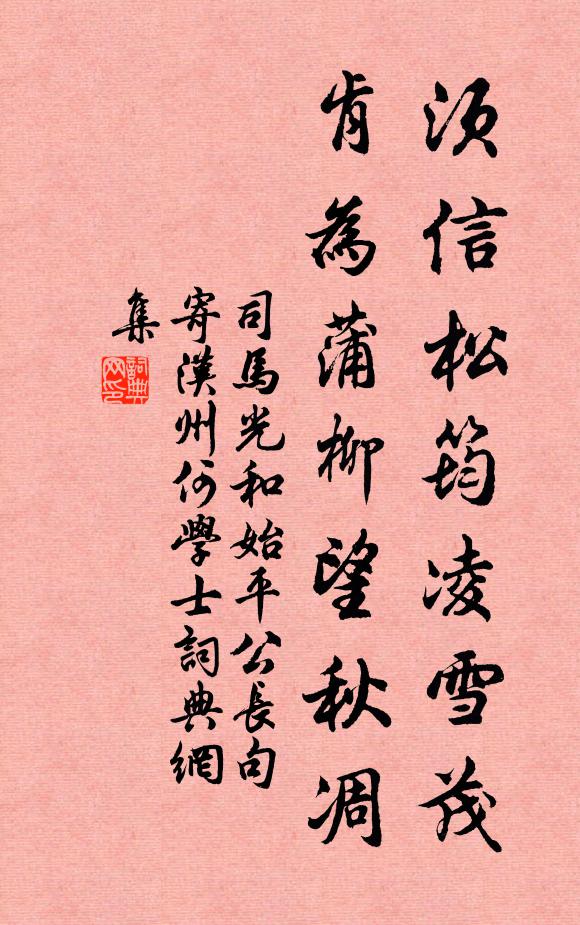 須信松筠凌雪茂
肯為蒲柳望秋凋
司馬光和始平公長句
寄漢州何學士詞典網
集
詞典
网印